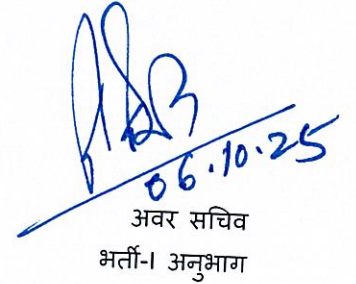 06.10.25
अवर सचिव
भर्ती-I अनुभाग